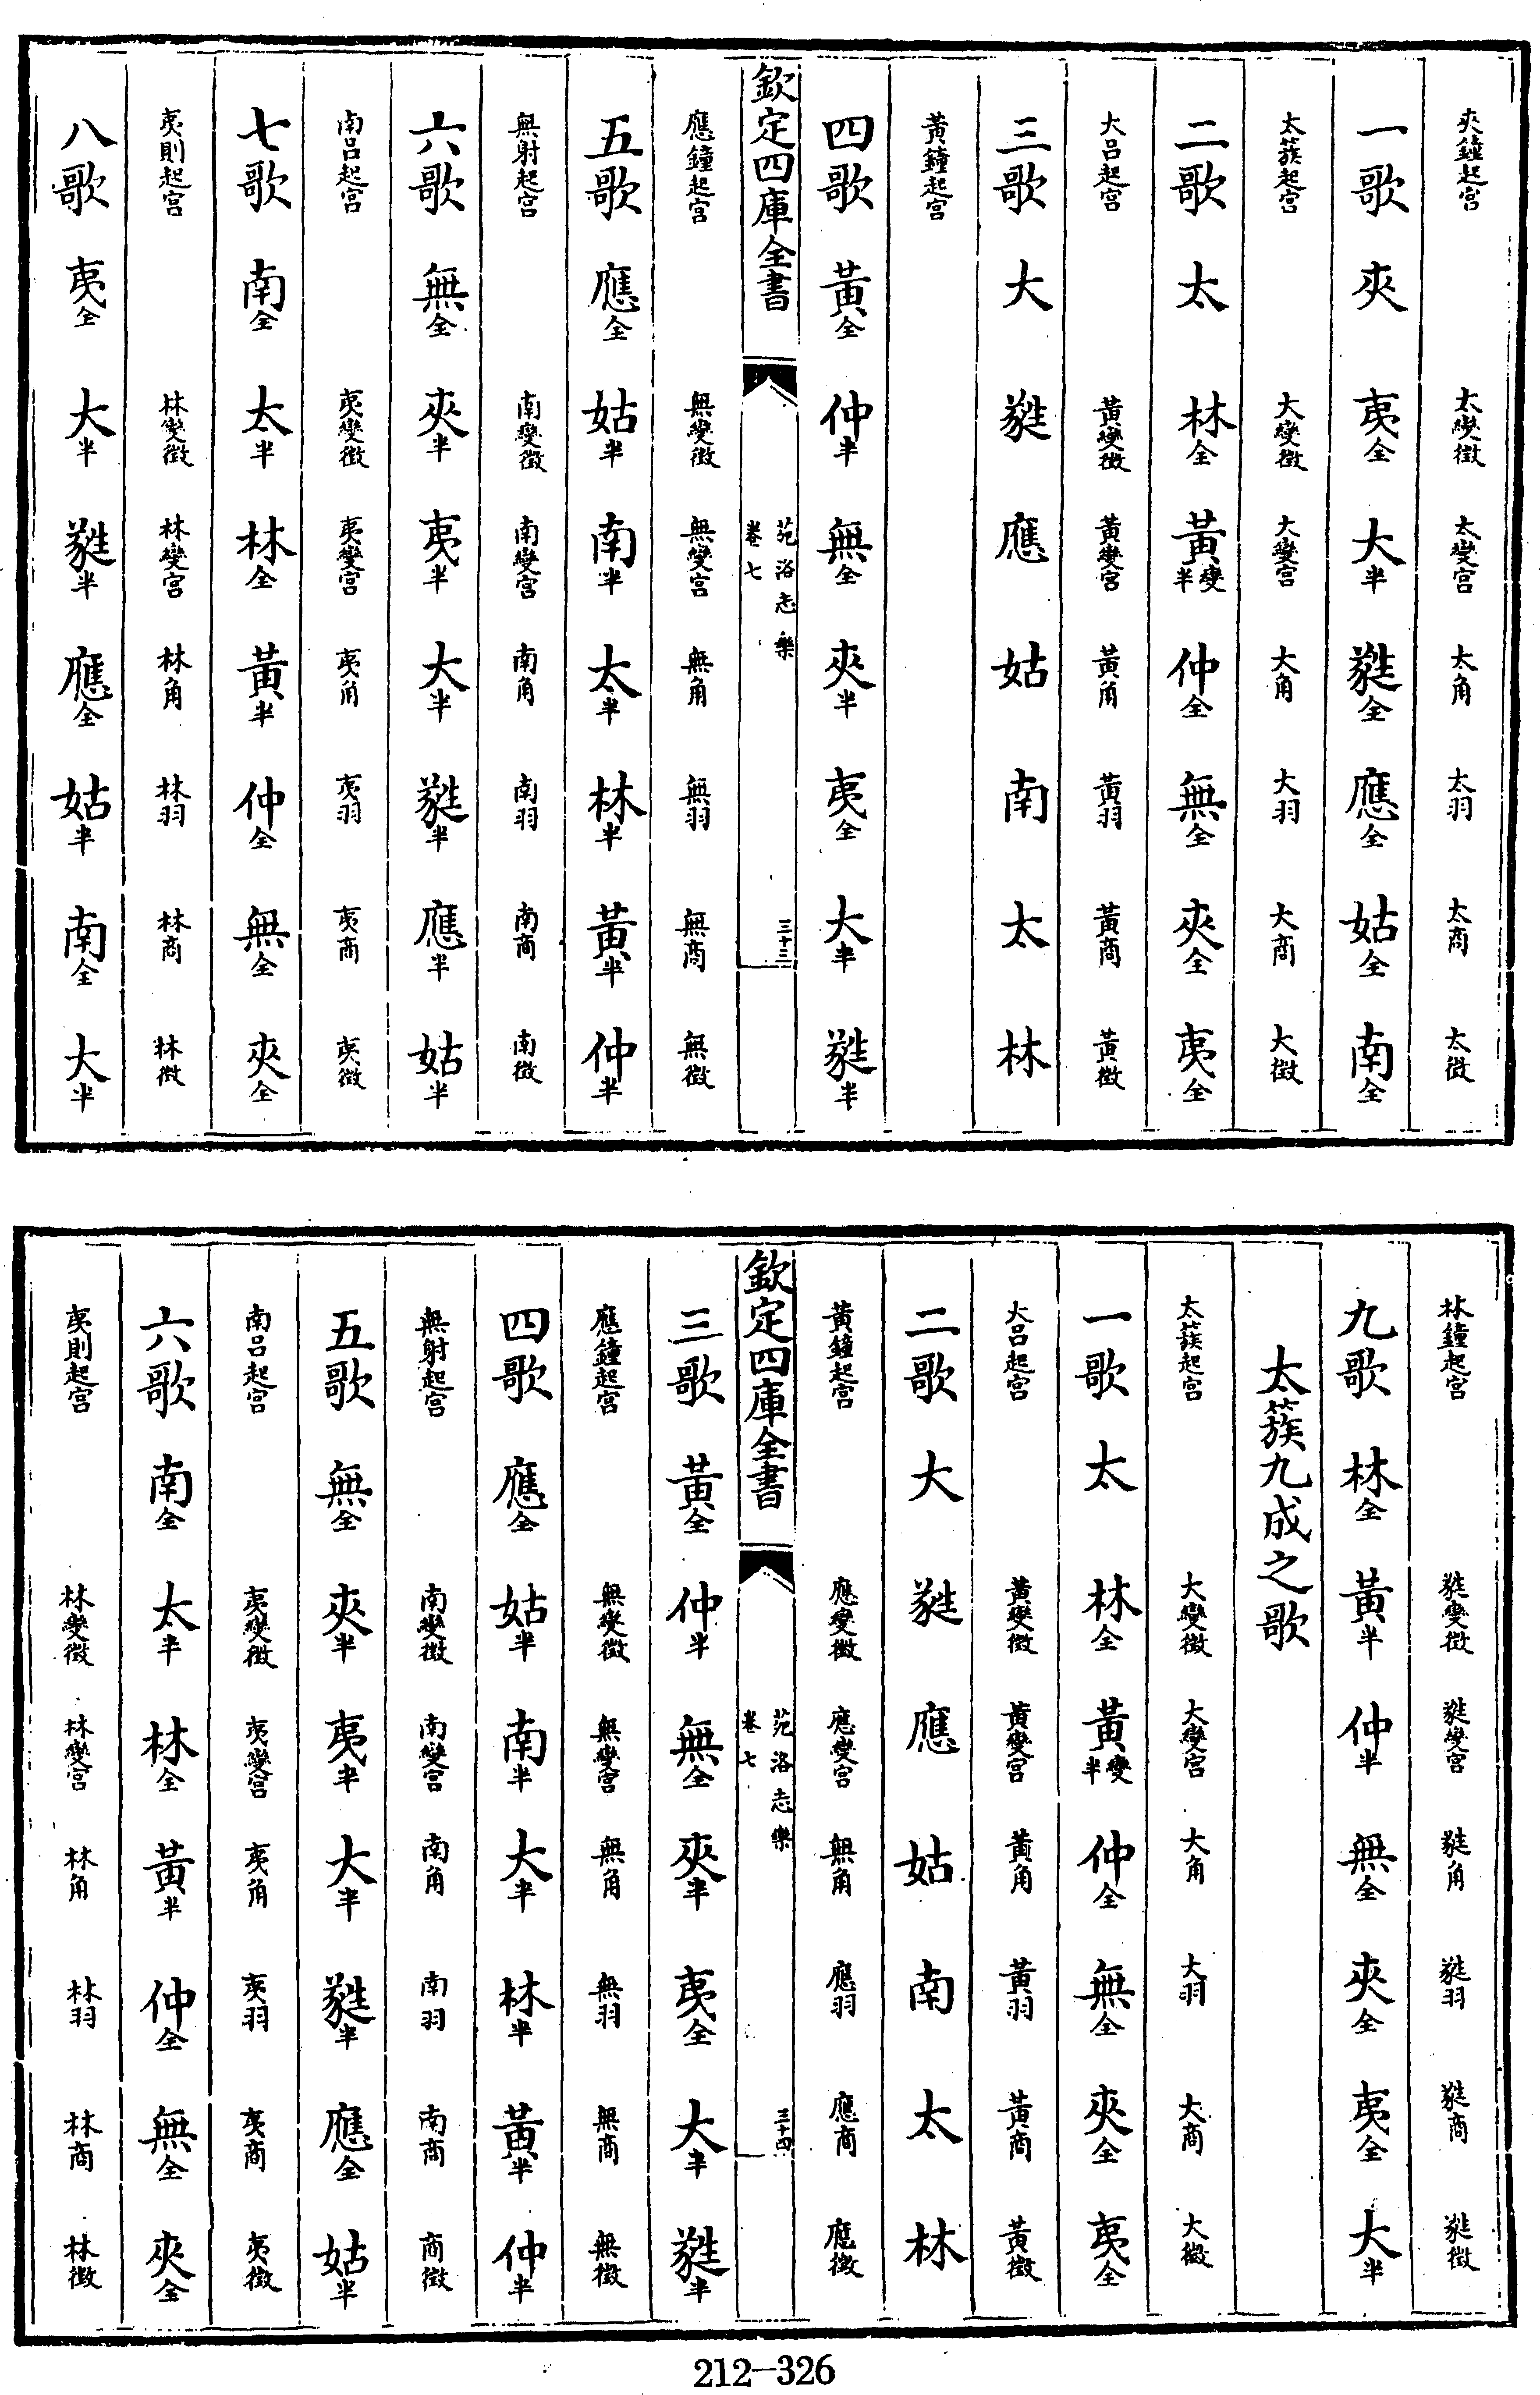 夾鐘起宫 太變徵 太變宫 太角 太羽 太商 太徵
一歌 夾 夷全 大半 蕤全 應全 姑全 南全
太蔟起宫 大變徵 大變宫 大角 大羽 大商 大徵
二歌 太 林全 黃變半 仲全 無全 夾全 夷全
大吕起宫 黃變徵 黃變宫 黃角 黃羽 黃商 黃徵
三歌 大 蕤 應 姑 南 太 林
黃鐘起宫
四歌 黃全 仲半 無全 夾半 夷全 大半 蕤半
欽定四庫全書 苑洛志樂 卷七 三十三
應鐘起宫 無變徵 無變宫 無角 無羽 無商 無徵
五歌 應全 姑半 南半 太半 林半 黃半 仲半
無射起宫 南變徵 南變宫 南角 南羽 南商 南徵
六歌 無全 夾半 夷半 大半 蕤半 應半 姑半
南吕起宫 夷變徵 夷變宫 夷角 夷羽 夷商 夷徵
七歌 南全 太半 林全 黃半 仲全 無全 夾全
夷則起宫 林變徵 林變宫 林角 林羽 林商 林徵
八歌 夷全 大半 蕤半 應全 姑半 南全 大半
林鐘起宫 蕤變徵 蕤變宫 蕤角 蕤羽 蕤商 蕤徵
九歌 林全 黃半 仲半 無全 夾全 夷全 大半
太蔟九成之歌
太蔟起宫 大變徵 大變宫 大角 大羽 大商 大徵
一歌 太 林全 黃變半 仲全 無全 夾全 夷全
大吕起宫 黃變徵 黃變宫 黃角 黃羽 黃商 黃徵
二歌 大 蕤 應 姑 南 太 林
黃鐘起宫 應變徵 應變宫 無角 應羽 應商 應徵
欽定四庫全書 苑洛志樂 卷七 三十四
三歌 黃全 仲半 無全 夾半 夷全 大半 蕤半
應鐘起宫 無變徵 無變宫 無角 無羽 無商 無徵
四歌 應全 姑半 南半 大半 林半 黃半 仲半
無射起宫 南變徵 南變宫 南角 南羽 南商 商徵
五歌 無全 夾半 夷半 大半 蕤半 應全 姑半
南吕起宫 夷變徵 夷變宫 夷角 夷羽 夷商 夷徵
六歌 南全 太半 林全 黃半 仲全 無全 夾全
夷則起宫 林變徵 林變宫 林角 林羽 林商 林徵
212-326